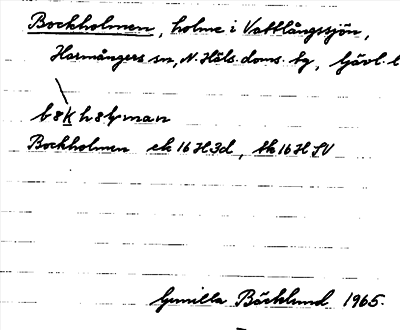 Bockholmen, holme i Vattlångssjön,
Harmångers sn, N. Häls. doms. tg, Gävl. l
Bockholmen ek 16H3d, tk 16H SV
Gunilla Bäcklund 1965.